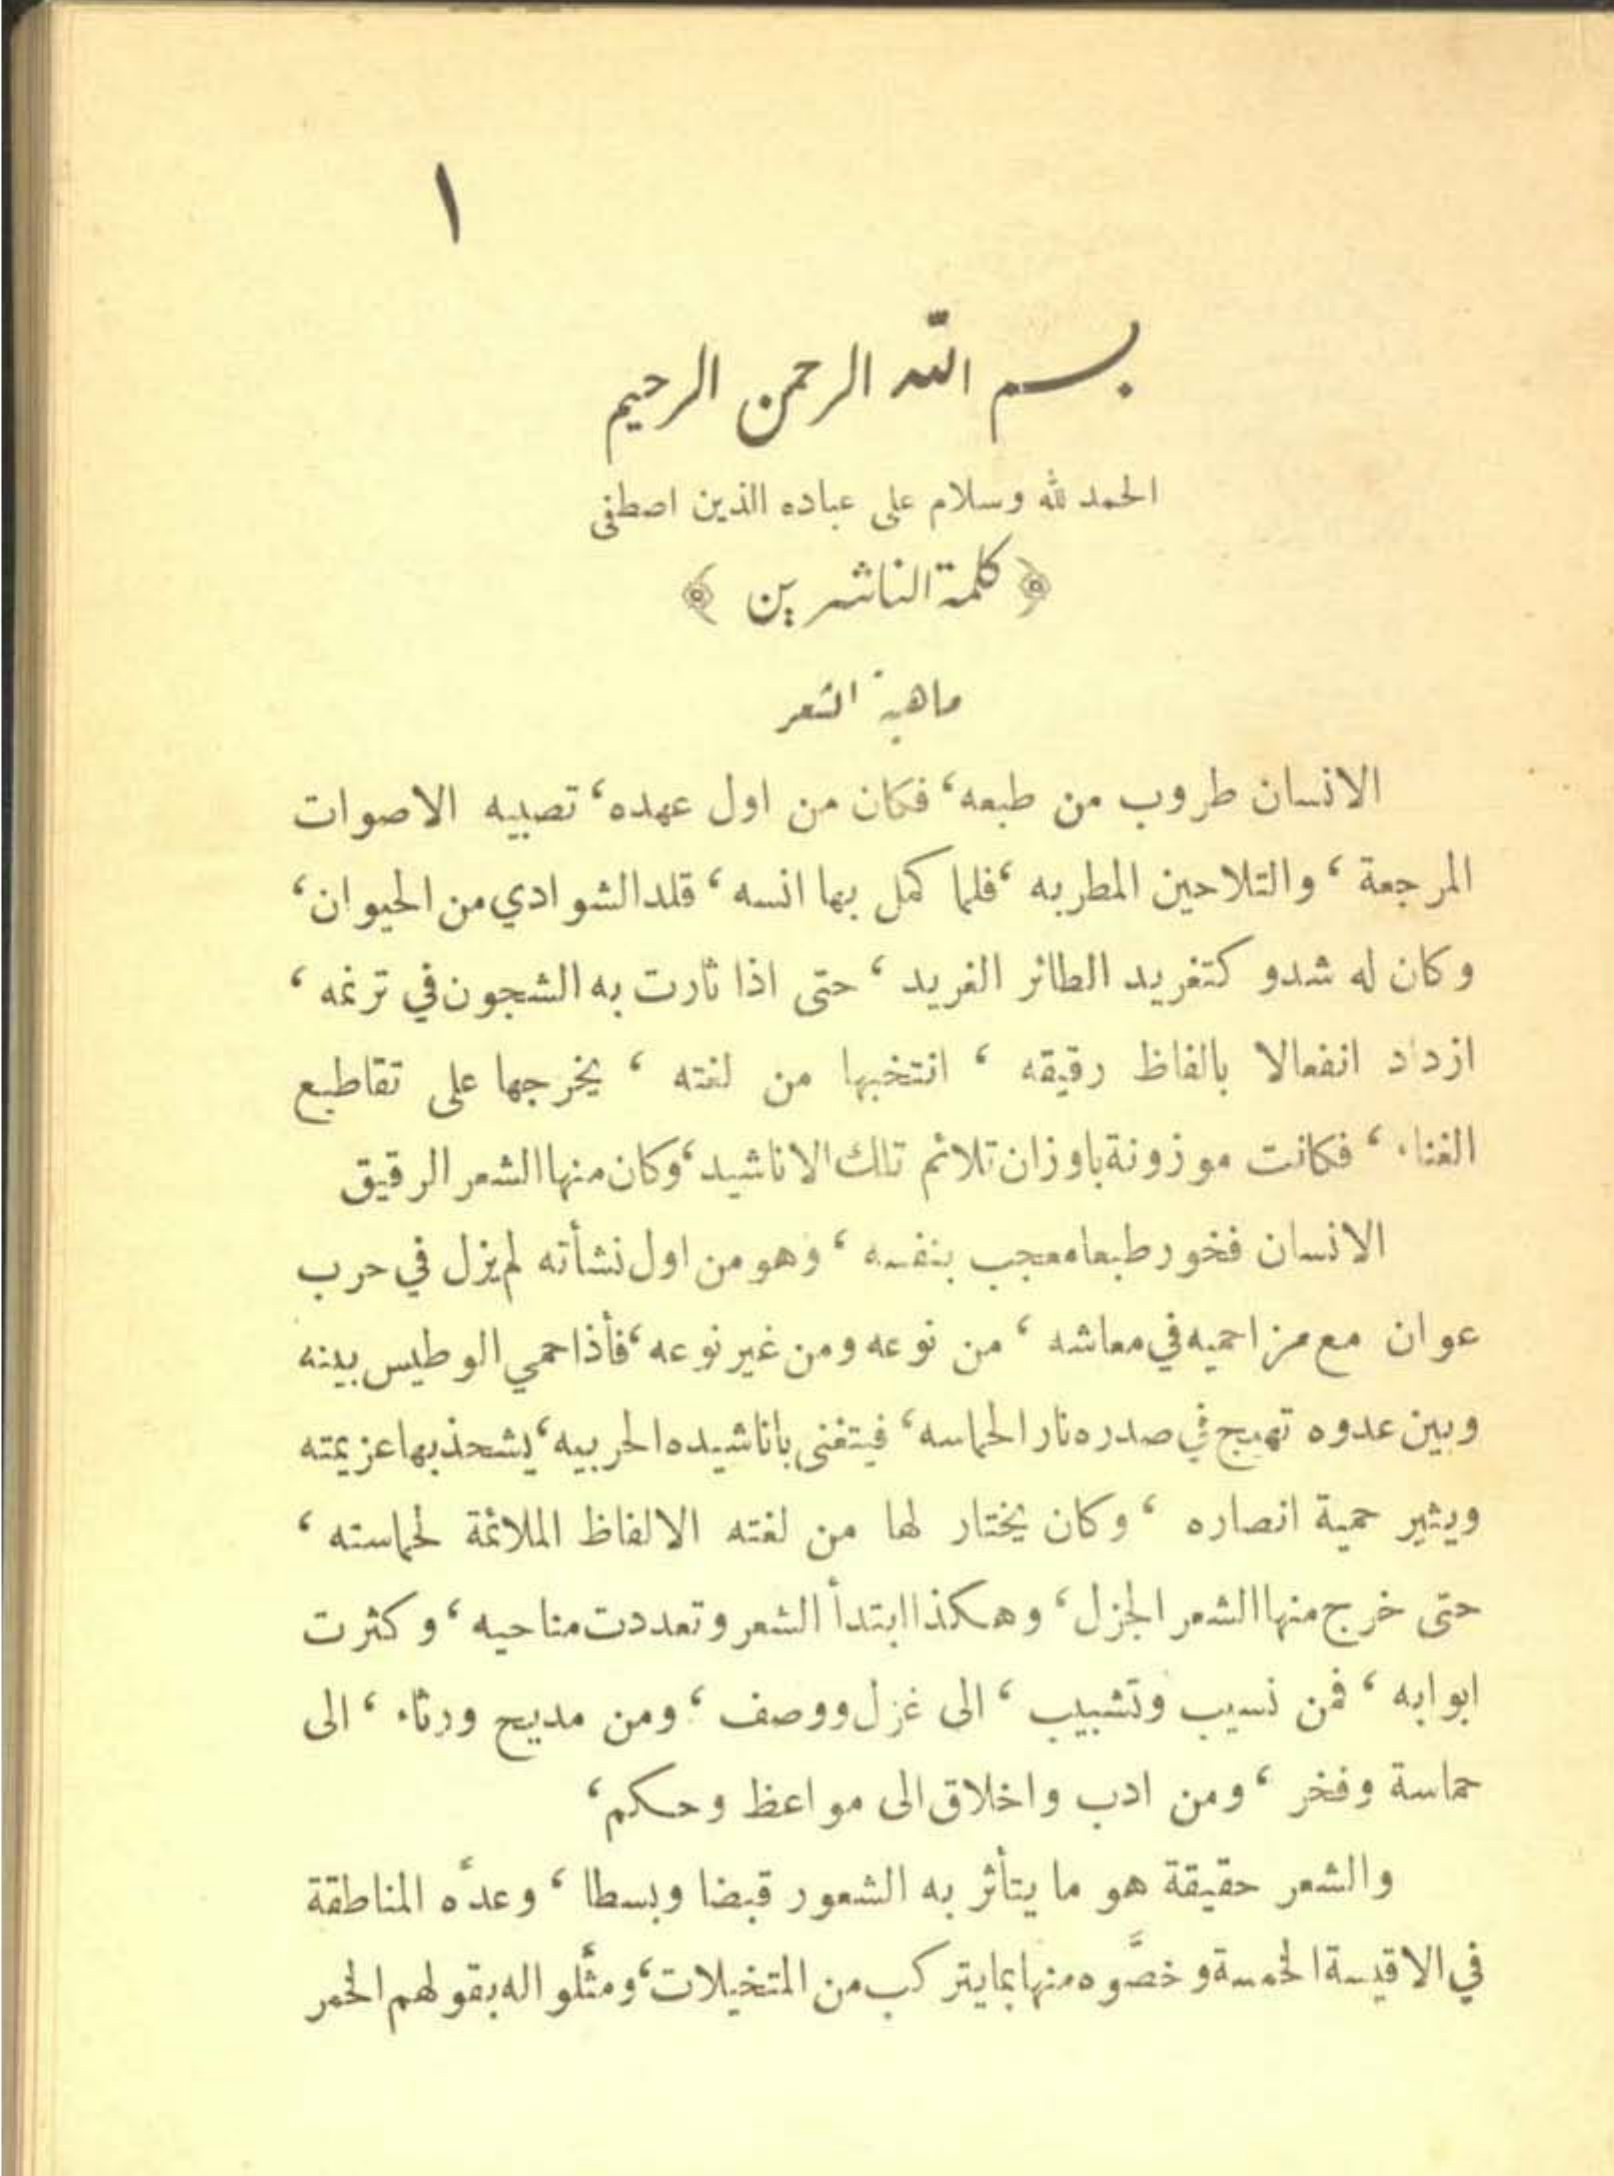 ١
بسم الله الرحمن الرحيم
الحمد لله وسلام على عباده الذين اصطفى
﴿ كلمة الناشرين ﴾
ماهية الشعر
الانسان طروب من طبعه، فكان من اول عهده، تصبيه الاصوات
المرجعة، والتلاحين المطربه، فلما كمل بها انسه، قلد الشوادي من الحيوان،
وكان له شدو كتغريد الطائر الغريد، حتى اذا ثارت به الشجون في ترنمه،
ازداد انفعالا بالفاظ رقيقه، انتخبها من لغته، يخرجها على تقاطيع
الغناء، فكانت موزونة باوزان تلائم تلك الاناشيد، وكان منها الشعر الرقيق
الانسان فخور طبعا معجب بنفسه، وهو من اول نشأته لم يزل في حرب
عوان مع مزاحميه في معاشه، من نوعه ومن غير نوعه، فأذا حمي الوطيس بينه
وبين عدوه تهيج في صدره نار الحماسه، فيتغنى باناشيده الحربيه، يشحذ بها عزيمته
ويثير حمية انصاره، وكان يختار لها من لغته الالفاظ الملائمة لحماسته،
حتى خرج منها الشعر الجزل، وهكذا ابتدأ الشعر وتعددت مناحيه، وكثرت
ابوابه، فمن نسيب وتشبيب، الى غزل ووصف، ومن مديح ورثاء، الى
حماسة وفخر، ومن ادب واخلاق الى مواعظ وحكم،
والشعر حقيقة هو ما يتأثر به الشعور قبضا وبسطا، وعدَّه المناطقة
في الاقيسة الخمسة وخصَّوه منها بما يتركب من المتخيلات، ومثَّلوا له بقولهم الخمر